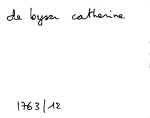 de byser catherine
1763/12